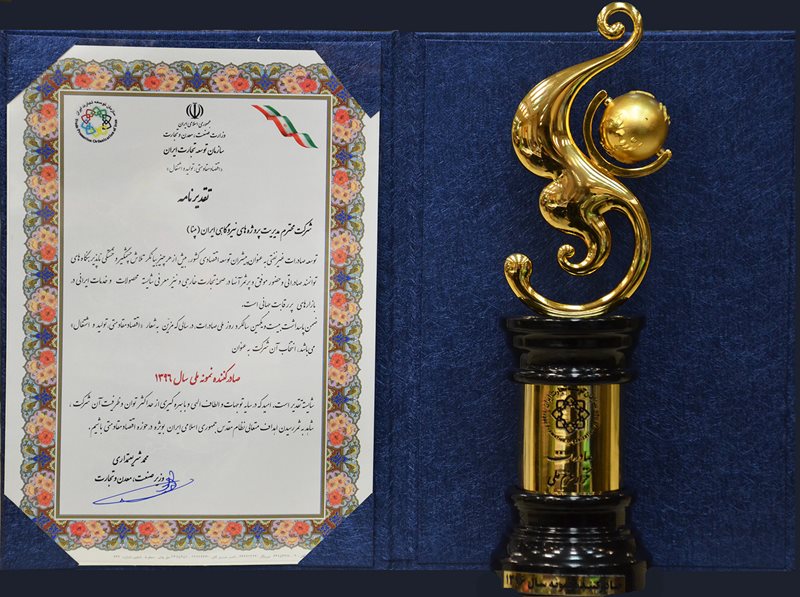 جمهوری اسلامی ایران
وزارت صنعت، معدن و تجارت
سازمان توسعه تجارت ایران
«اقتصاد مقاومتی: تولید و اشتغال»
تقدیرنامه
شرکت محترم مدیریت پروژه‌های نیروگاهی ایران (مپنا)
توسعه صادرات غیرنفتی به عنوان پیشران توسعه اقتصادی کشور، بیش از هر چیز بیانگر تلاش چشمگیر و خستگی ناپذیر بنگاه‌های
توانمند صادراتی و حضور موفق و پرثمر آنها در صحنه تجارت خارجی و نیز معرفی شایسته محصولات و خدمات ایرانی در
بازارهای پر رقابت جهانی است.
ضمن پاسداشت بیست و یکمین سالگرد روز ملی صادرات، در سالی که مزین به شعار «اقتصاد مقاومتی، تولید و اشتغال»
می‌باشد، انتخاب آن شرکت به عنوان
صادرکننده نمونه ملی سال ۱۳۹۶
شایسته تقدیر است. امید که در سایه توجهات و الطاف الهی و با بهره‌گیری از حداکثر توان و ظرفیت آن شرکت،
شاهد به ثمر رسیدن اهداف متعالی نظام مقدس جمهوری اسلامی ایران بویژه در حوزه اقتصاد مقاومتی باشیم.
محمد شریعتمداری
وزیر صنعت، معدن و تجارت
صادرکننده نمونه سال ۱۳۹۶